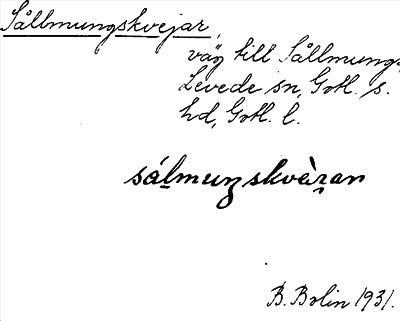 Sållmungskvejar,
väg till Sållmungs,
Levede sn, Gotl. s.
hd, Gotl. l.
sálmuŋskvàran
B. Bolin 1931.